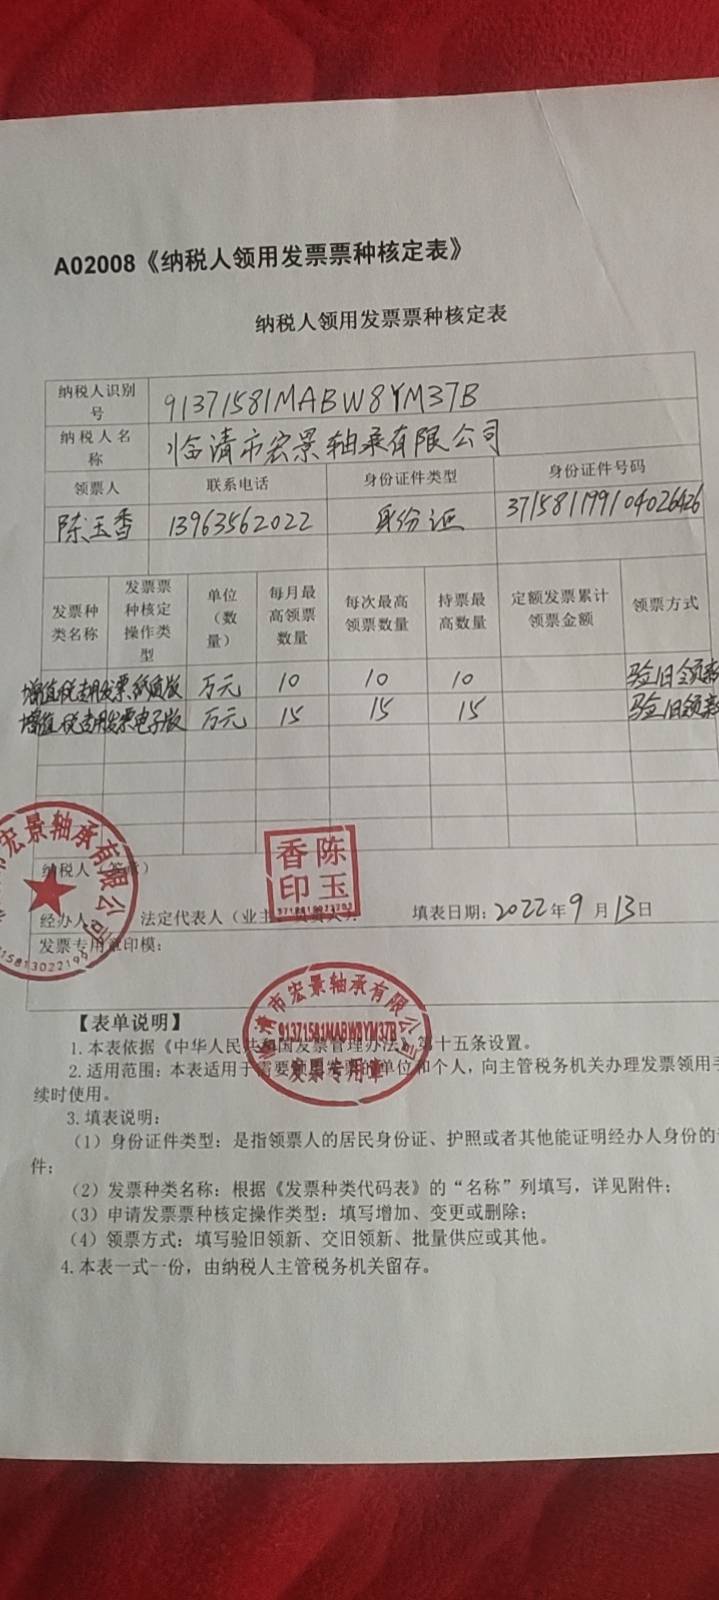 A02008《纳税人领用发票票种核定表》
纳税人领用发票票种核定表
纳税人识别号 91371581MABW8YM37B
纳税人名称 临清市宏景轴承有限公司
领票人 联系电话 身份证件类型 身份证件号码
陈玉香 13963562022 身份证 371581199104026426
发票种类名称 发票票种核定操作类型 单位（数量） 每月最高领票数量 每次最高领票数量 持票最高数量 定额发票累计领票金额 领票方式
增值税专用发票纸质版 万元 10 10 10 验旧领新
增值税专用发票电子版 万元 15 15 15 验旧领新
市宏景轴承有限公司
香陈
印玉
纳税人（签章）
经办人： 法定代表人（业主、负责人）： 填表日期：2022年9月13日
发票专用章印模：
临清市宏景轴承有限公司
91371581MABW8YM37B
发票专用章
【表单说明】
1.本表依据《中华人民共和国发票管理办法》第十五条设置。
2.适用范围：本表适用于需要领用发票的单位和个人，向主管税务机关办理发票领用手
续时使用。
3.填表说明：
（1）身份证件类型：是指领票人的居民身份证、护照或者其他能证明经办人身份的证
件；
（2）发票种类名称：根据《发票种类代码表》的“名称”列填写，详见附件；
（3）申请发票票种核定操作类型：填写增加、变更或删除；
（4）领票方式：填写验旧领新、交旧领新、批量供应或其他。
4.本表一式一份，由纳税人主管税务机关留存。